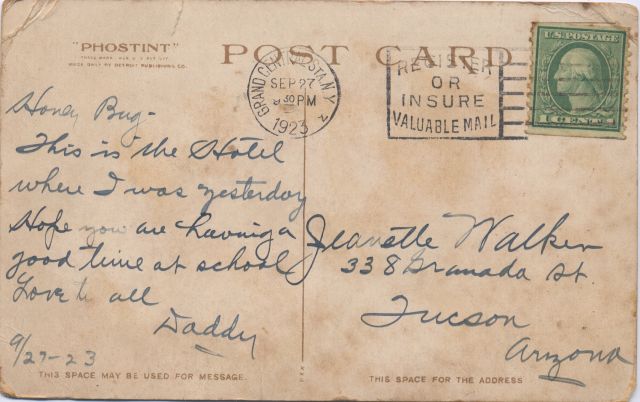 "PHOSTINT"
TRADE MARK REG. U.S. PAT. OFF.
MADE ONLY BY DETROIT PUBLISHING CO.
POST CARD
GRAND CENTRAL STA. N.Y.
SEP 27
8 30 PM
1923
REGISTER
OR
INSURE
VALUABLE MAIL
U.S. POSTAGE
1 CENT 1
Honey Bug-
This is the Hotel
where I was yesterday
Hope you are having a
good time at school
Love to all
Daddy
9/27-23
Jeanette Walker
338 Granada St.
Tucson
Arizona
THIS SPACE MAY BE USED FOR MESSAGE.
THIS SPACE FOR THE ADDRESS